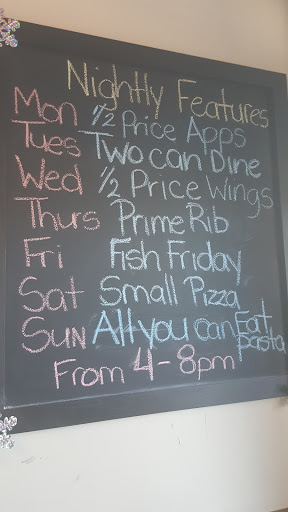 Nightly Features
Mon 1/2 Price Apps
Tues Two can Dine
Wed 1/2 Price Wings
Thurs Prime Rib
Fri Fish Friday
Sat Small Pizza
Sun All you can Eat pasta
From 4-8pm